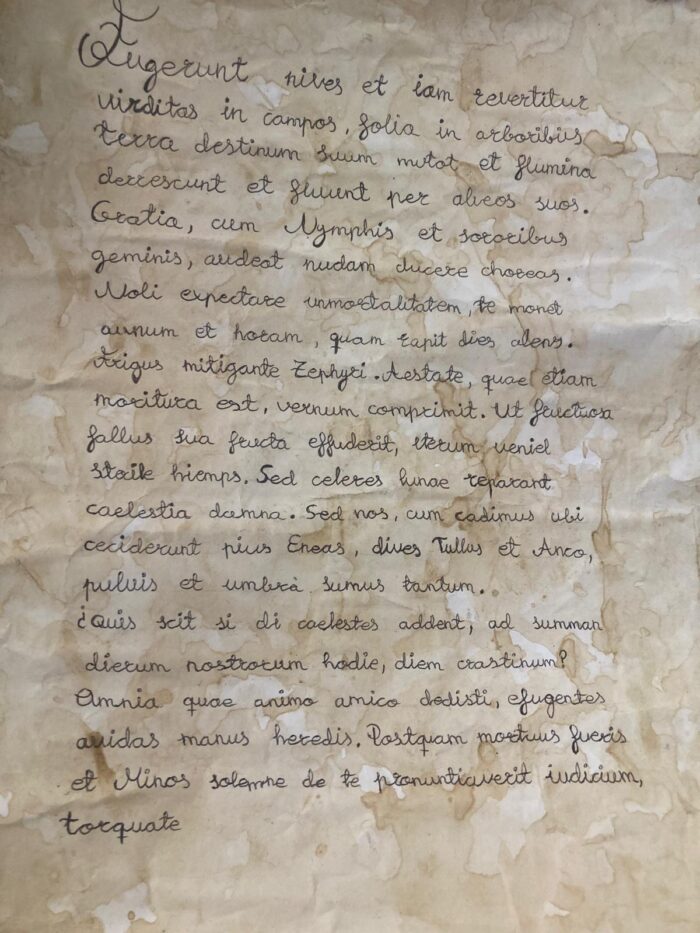 Fugerunt nives et iam revertitur
virditas in campos, folia in arboribus
terra destinum suum mutat et flumina
derrescunt et fluunt per alveos suos.
Gratia, cum Nymphis et sororibus
geminis, audeat nudam ducere choreas.
Noli expectare unmortalitatem, te monet
annum et horam, quam rapit dies alens.
Frigus mitigante Zephyri. Aestate, quae etiam
moritura est, vernum comprimit. Ut fructuosa
fallus sua fructa effuderit, iterum veniel
sterile hiemps. Sed celeres lunae reparant
caelestia damna. Sed nos, cum cadimus ubi
ceciderunt pius Eneas, dives Tullus et Anco,
puluis et umbra sumus tantum.
¿Quis scit si di caelestes addent, ad summan
dierum nostrorum hodie, diem crastinum?
Omnia quae animo amico dedisti, efugentes
avidas manus heredis. Postquam mortuus fueris
et Minos solemne de te pronuntiaverit iudicium,
torquate